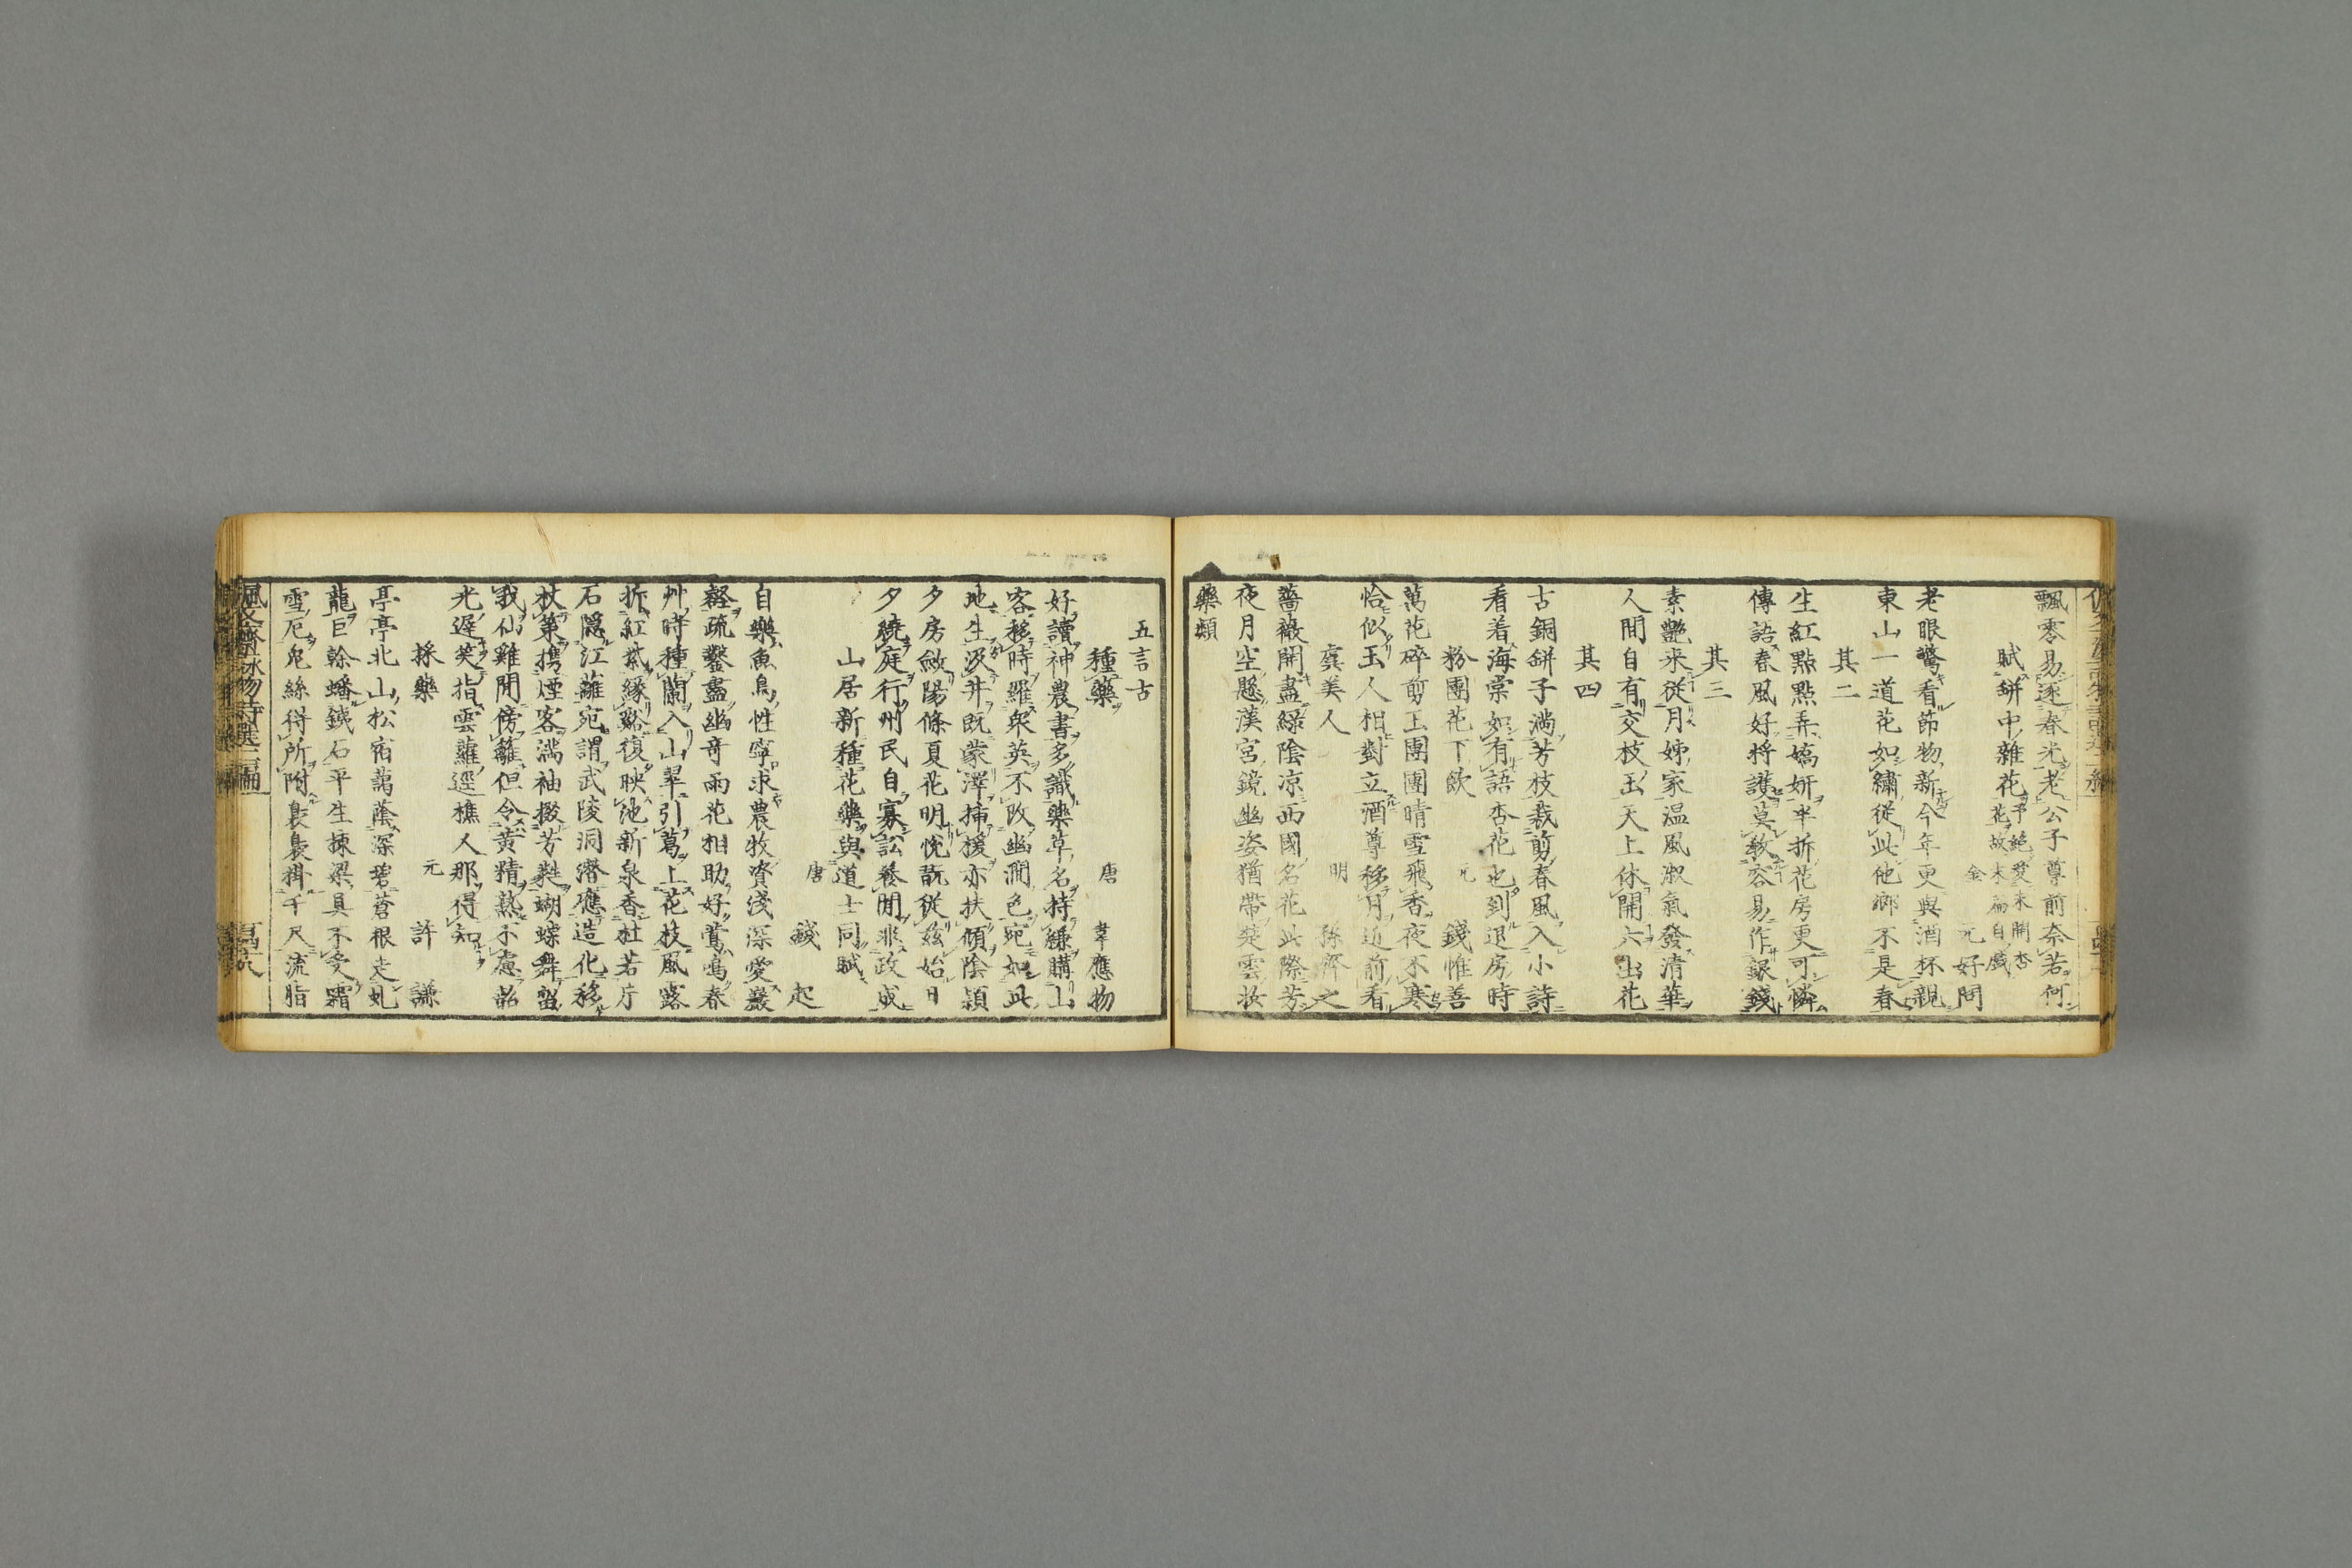 飄零易逐春光老公子尊前奈若何
賦缾中雜花
予絕愛未開杏
花故末篇自戲
金
元好問
老眼驚看節物新今年更與酒杯親
東山一道花如繡從此他鄉不是春
其二
生紅點點弄嬌妍半拆花房更可憐
傳語春風好將護莫教容易作銀錢
其三
素艷來從月姊家温風淑氣發清華
人間自有交枝玉天上休開六出花
其四
古銅缾子滿芳枝裁剪春風入小詩
看着海棠如有語杏花也到退房時
粉團花下飲
元
錢惟善
萬花碎剪玉團團晴雪飛香夜不寒
恰似玉人相對立酒尊移月近前看
虞美人
明
孫齊之
薔薇開盡綠陰凉西國名花此際芳
夜月空懸漢宮鏡幽姿猶帶楚雲妝
藥類
五言古
種藥
唐
韋應物
好讀神農書多識藥草名持縑購山
客移時羅眾英不改幽澗色宛如此
地生汲井既蒙澤插援亦扶傾陰頴
夕房斂陽條夏花明悅翫從茲始日
夕繞庭行州民自寡訟養閒非政成
山居新種花藥與道士同賦
唐
錢起
自樂魚鳥性寧求農牧資淺深愛巖
壑疏鑿盡幽奇雨花相助好鶯鳴春
艸時種蘭入山翠引葛上花枝風露
拆紅紫緣谿復映池新泉香杜若片
石隱江蘺宛謂武陵洞潛應造化移
杖策攜煙客滿袖掇芳蕤蝴蝶舞留
我仙雞閒傍籬但令黃精熟不慮韶
光遲笑指雲蘿逕樵人那得知
採藥
元
許謙
亭亭北山松宿藹蔭深碧蒼根走虬
龍巨榦蟠鐵石平生棟梁具不受霜
雪厄兔絲得所附裊裊掛千尺流脂
佩文齋詠物詩選二編